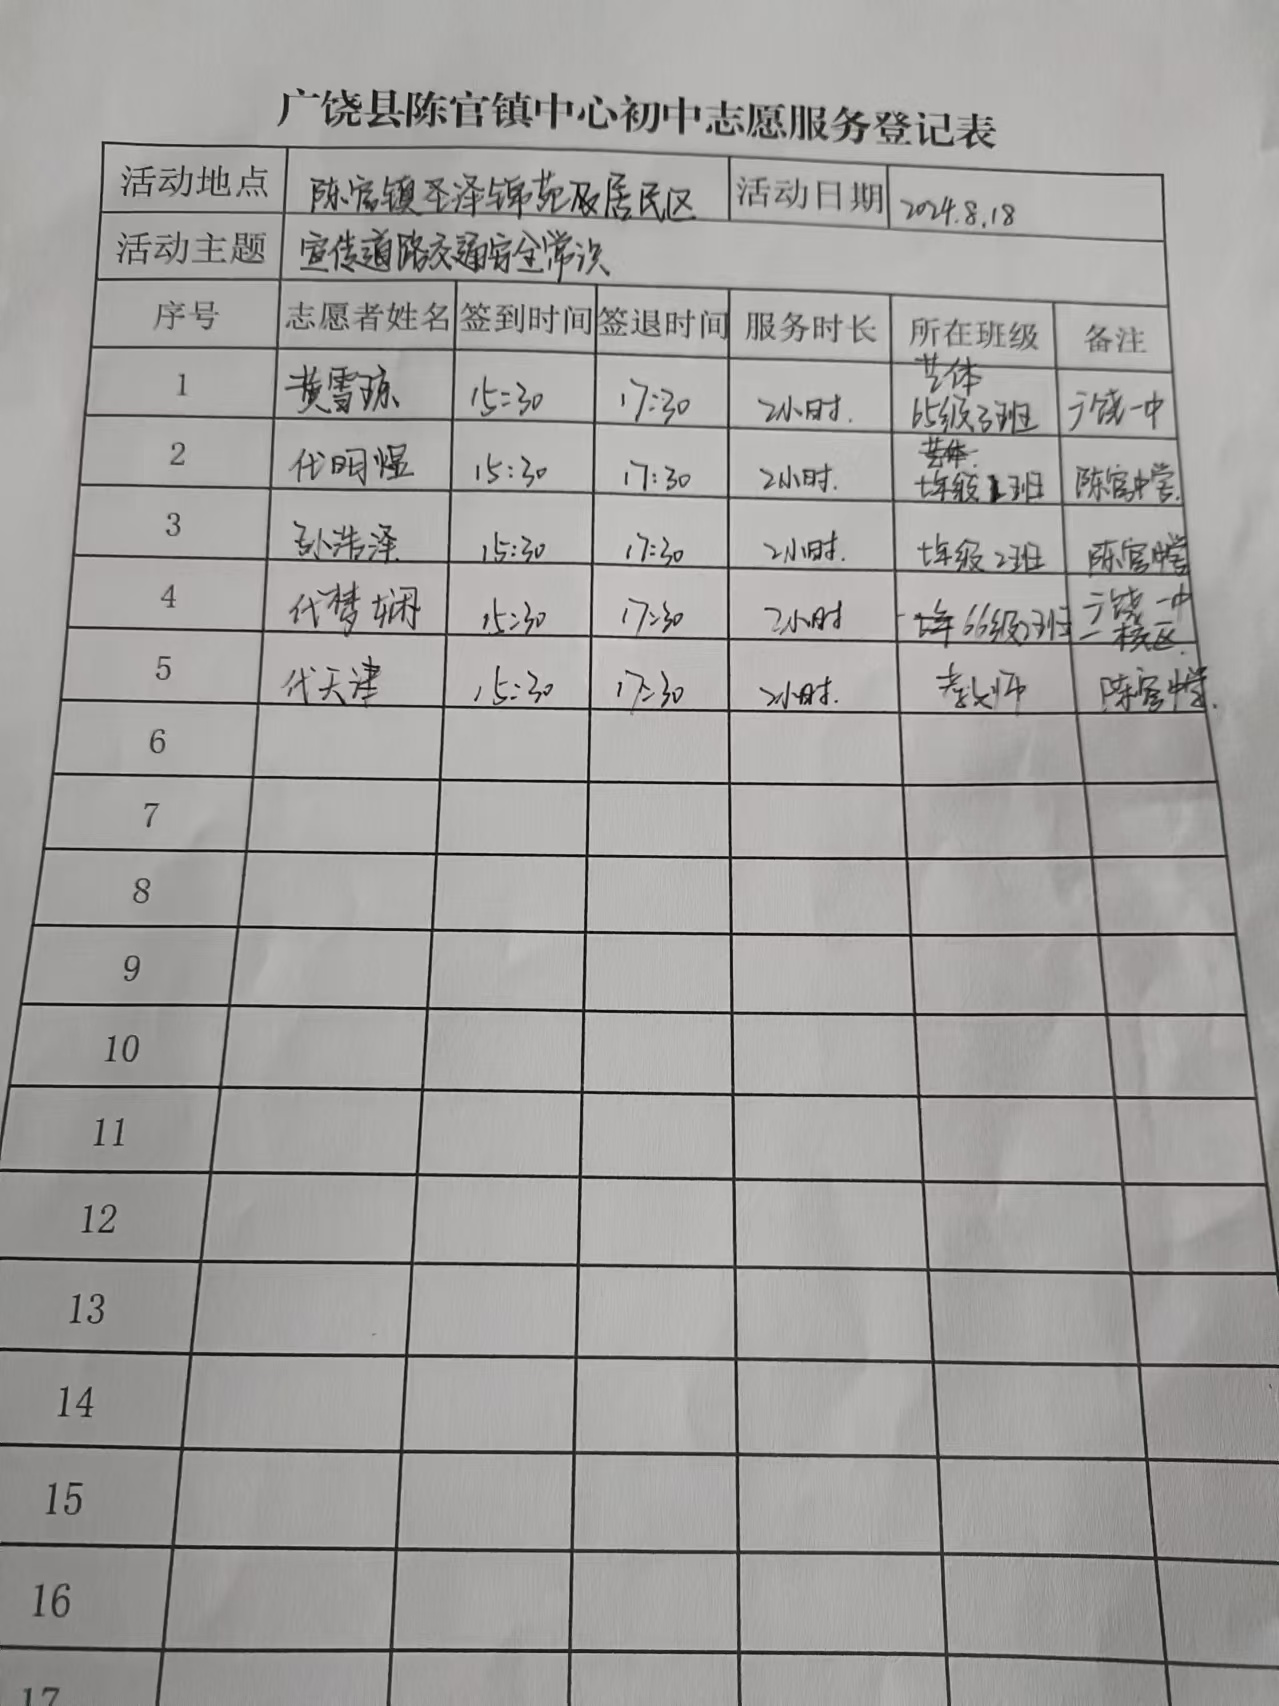 广饶县陈官镇中心初中志愿服务登记表
活动地点 陈官镇圣泽锦苑及居民区 活动日期 2024.8.18
活动主题 宣传道路交通安全常识
序号 志愿者姓名 签到时间 签退时间 服务时长 所在班级 备注
1 黄雪琼 15:30 17:30 2小时. 艺体65级3班 广饶一中
2 代明煜 15:30 17:30 2小时. 七年级1班 陈官中学.
3 孙浩泽 15:30 17:30 2小时. 七年级2班 陈官中学
4 代梦娴 15:30 17:30 2小时 66级2班 广饶一中一校区.
5 代天津 15:30 17:30 2小时. 教师 陈官中学.
6
7
8
9
10
11
12
13
14
15
16
17